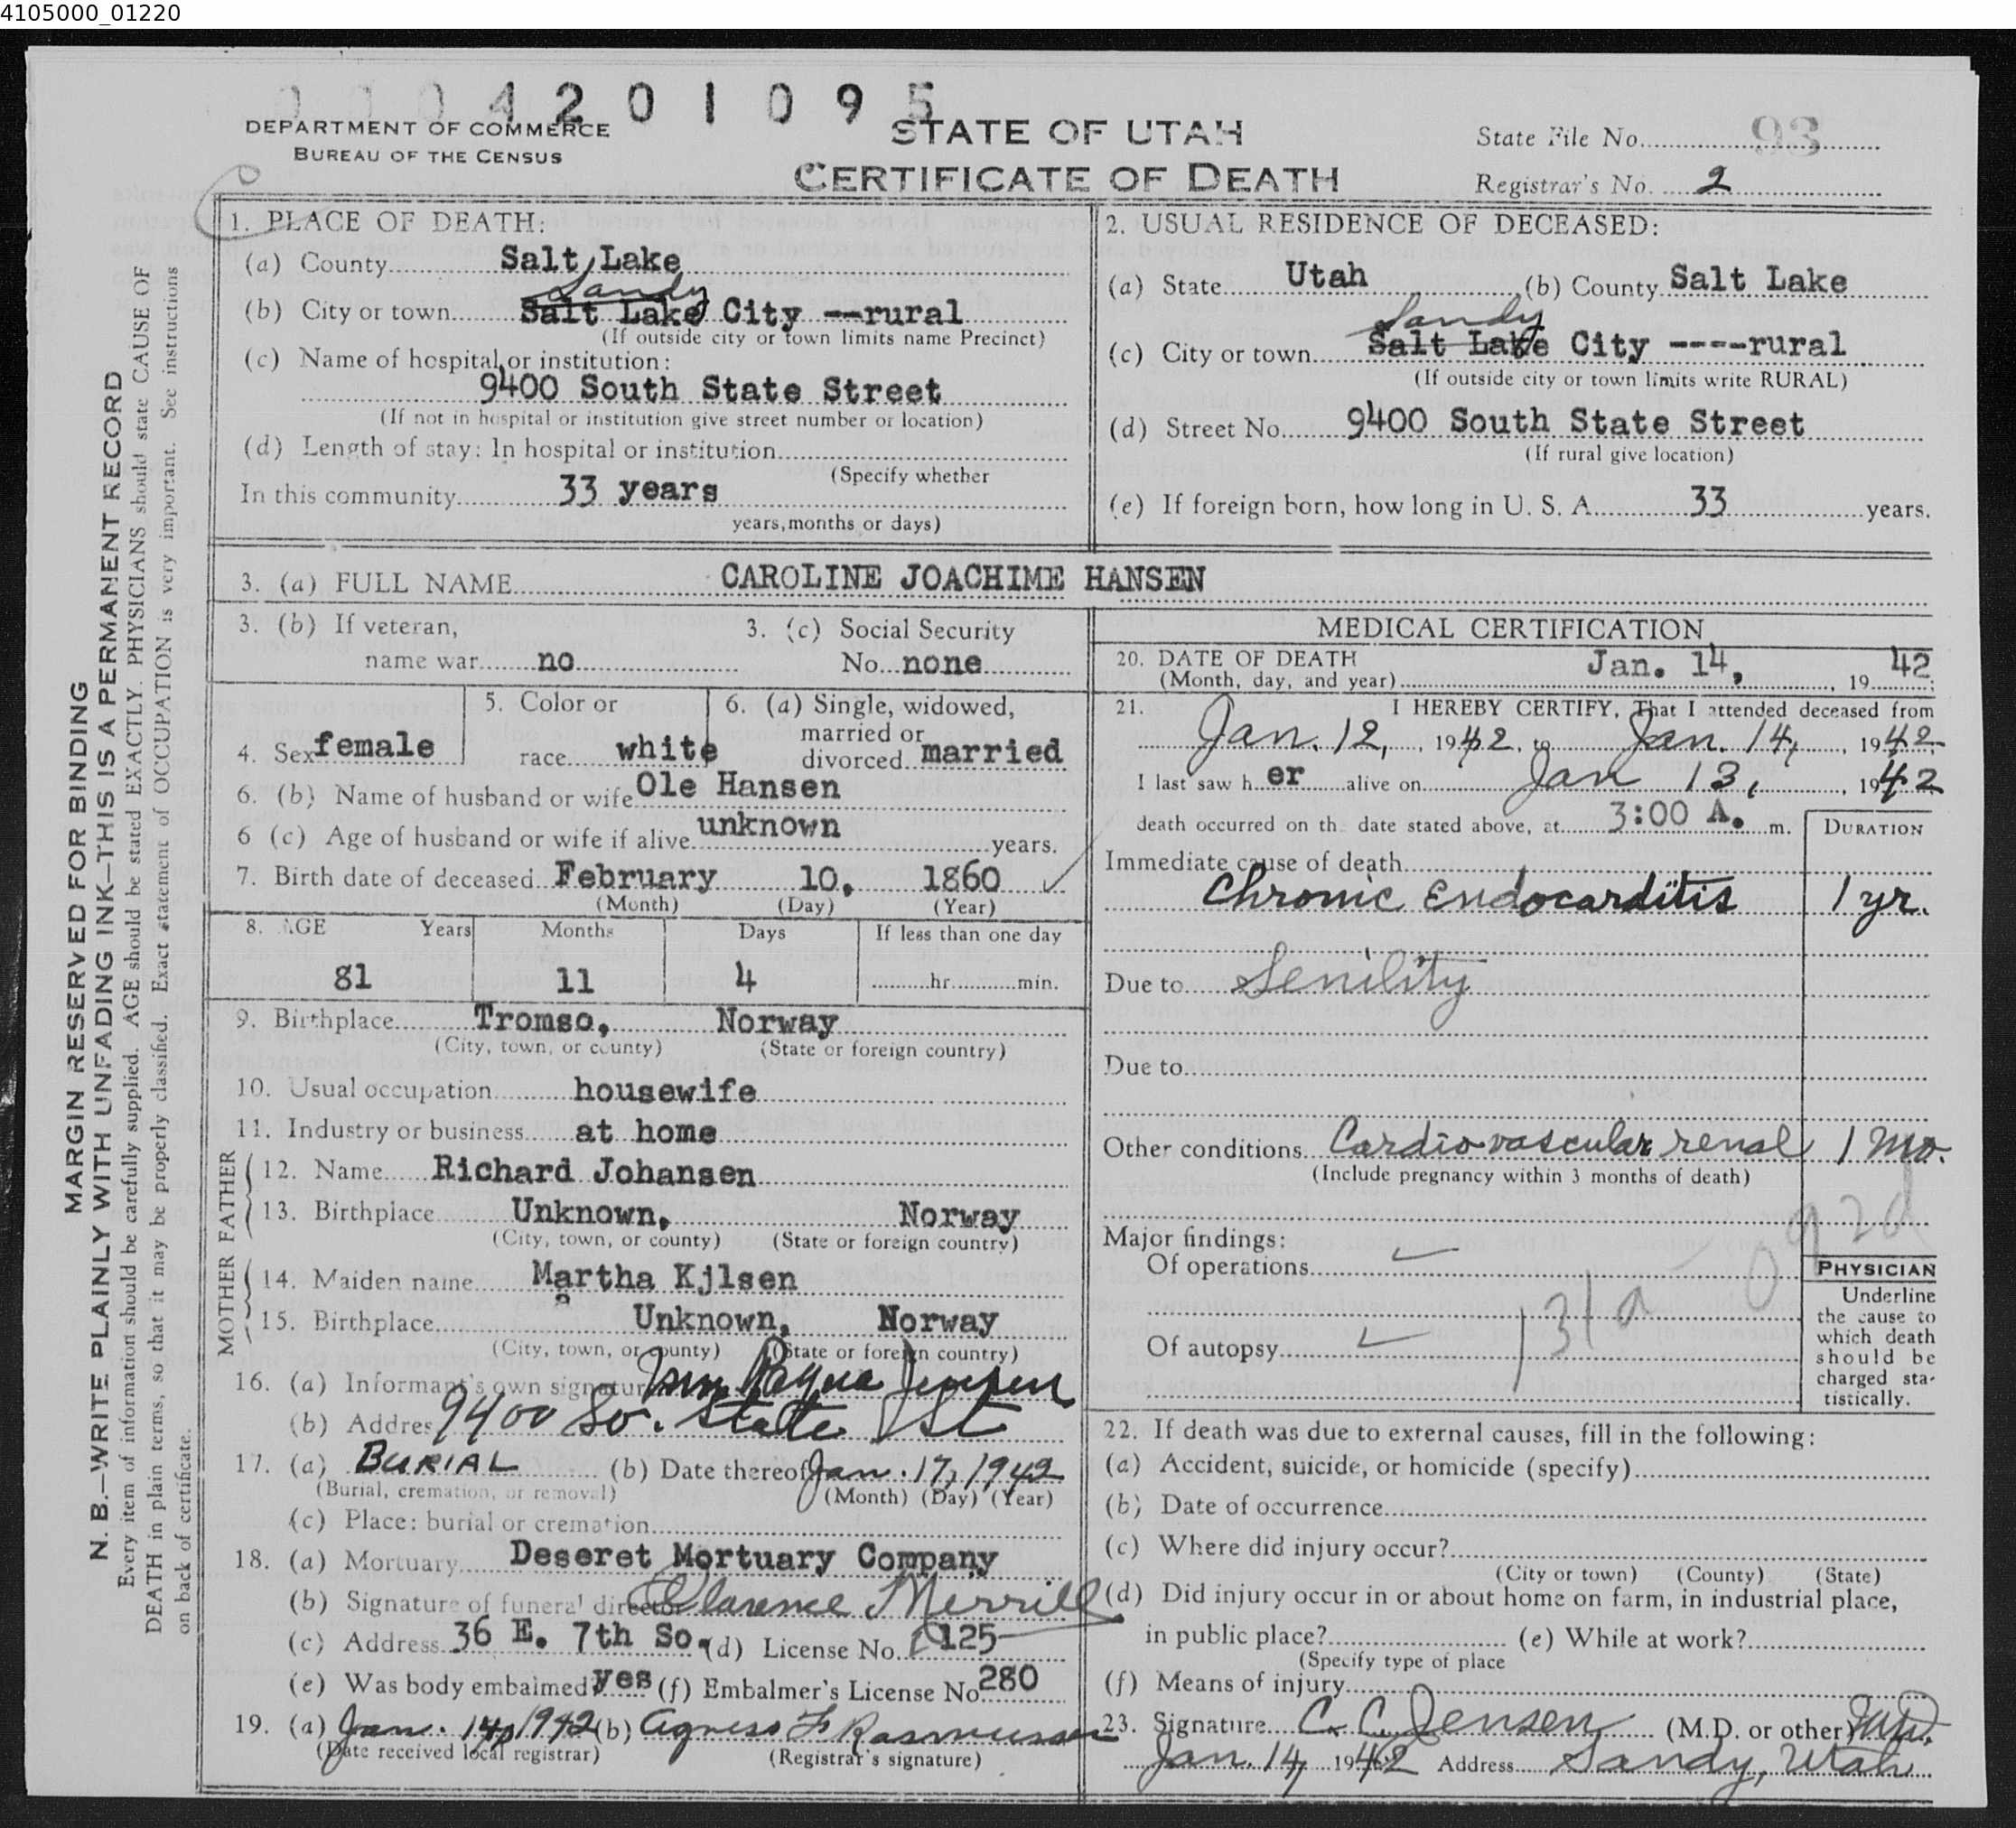 4105000_01220
0 0 0 4 2 0 1 0 9 5
DEPARTMENT OF COMMERCE
BUREAU OF THE CENSUS
STATE OF UTAH
CERTIFICATE OF DEATH
State File No. 93
Registrar's No. 2
MARGIN RESERVED FOR BINDING
N. B.—WRITE PLAINLY WITH UNFADING INK—THIS IS A PERMANENT RECORD
Every item of information should be carefully supplied. AGE should be stated EXACTLY. PHYSICIANS should state CAUSE OF
DEATH in plain terms, so that it may be properly classified. Exact statement of OCCUPATION is very important. See instructions
on back of certificate.
1. PLACE OF DEATH:
(a) County Salt Lake
Sandy
(b) City or town Salt Lake City --rural
(If outside city or town limits name Precinct)
(c) Name of hospital or institution:
9400 South State Street
(If not in hospital or institution give street number or location)
(d) Length of stay: In hospital or institution
(Specify whether
In this community 33 years
years, months or days)
2. USUAL RESIDENCE OF DECEASED:
(a) State Utah (b) County Salt Lake
Sandy
(c) City or town Salt Lake City ----rural
(If outside city or town limits write RURAL)
(d) Street No. 9400 South State Street
(If rural give location)
(e) If foreign born, how long in U. S. A. 33 years.
3. (a) FULL NAME CAROLINE JOACHIME HANSEN
3. (b) If veteran,
name war no
3. (c) Social Security
No. none
4. Sex female
5. Color or
race white
6. (a) Single, widowed,
married or
divorced married
6. (b) Name of husband or wife Ole Hansen
6 (c) Age of husband or wife if alive unknown years.
7. Birth date of deceased February 10, 1860
(Month) (Day) (Year)
8. AGE Years Months Days If less than one day
81 11 4 hr. min.
9. Birthplace Tromso, Norway
(City, town, or county) (State or foreign country)
10. Usual occupation housewife
11. Industry or business at home
FATHER
12. Name Richard Johansen
13. Birthplace Unknown, Norway
(City, town, or county) (State or foreign country)
MOTHER
14. Maiden name Martha Kjlsen
15. Birthplace Unknown, Norway
(City, town, or county) (State or foreign country)
16. (a) Informant's own signature Jensen
(b) Address 9400 So. State St
17. (a) BURIAL (b) Date thereof Jan. 17, 1942
(Burial, cremation, or removal) (Month) (Day) (Year)
(c) Place: burial or cremation
18. (a) Mortuary Deseret Mortuary Company
(b) Signature of funeral director Clarence Merrill
(c) Address 36 E. 7th So. (d) License No. 125
(e) Was body embalmed yes (f) Embalmer's License No. 280
19. (a) Jan. 14, 1942 (b) Agness F Rasmussen
(Date received local registrar) (Registrar's signature)
MEDICAL CERTIFICATION
20. DATE OF DEATH
(Month, day, and year) Jan. 14, 1942
21. I HEREBY CERTIFY, That I attended deceased from
Jan. 12, 1942, to Jan. 14, 1942
I last saw her alive on Jan 13, 1942
death occurred on the date stated above, at 3:00 A. m.
DURATION
Immediate cause of death
Chronic Endocarditis 1 yr.
Due to Senility
Due to
Other conditions Cardiovascular renal 1 Mo.
(Include pregnancy within 3 months of death)
92d
Major findings:
Of operations
131a
Of autopsy
PHYSICIAN
Underline
the cause to
which death
should be
charged sta-
tistically.
22. If death was due to external causes, fill in the following:
(a) Accident, suicide, or homicide (specify)
(b) Date of occurrence
(c) Where did injury occur?
(City or town) (County) (State)
(d) Did injury occur in or about home on farm, in industrial place,
in public place? (e) While at work?
(Specify type of place
(f) Means of injury
23. Signature C. C. Jensen (M.D. or other) M.D.
Jan. 14, 1942 Address Sandy, Utah